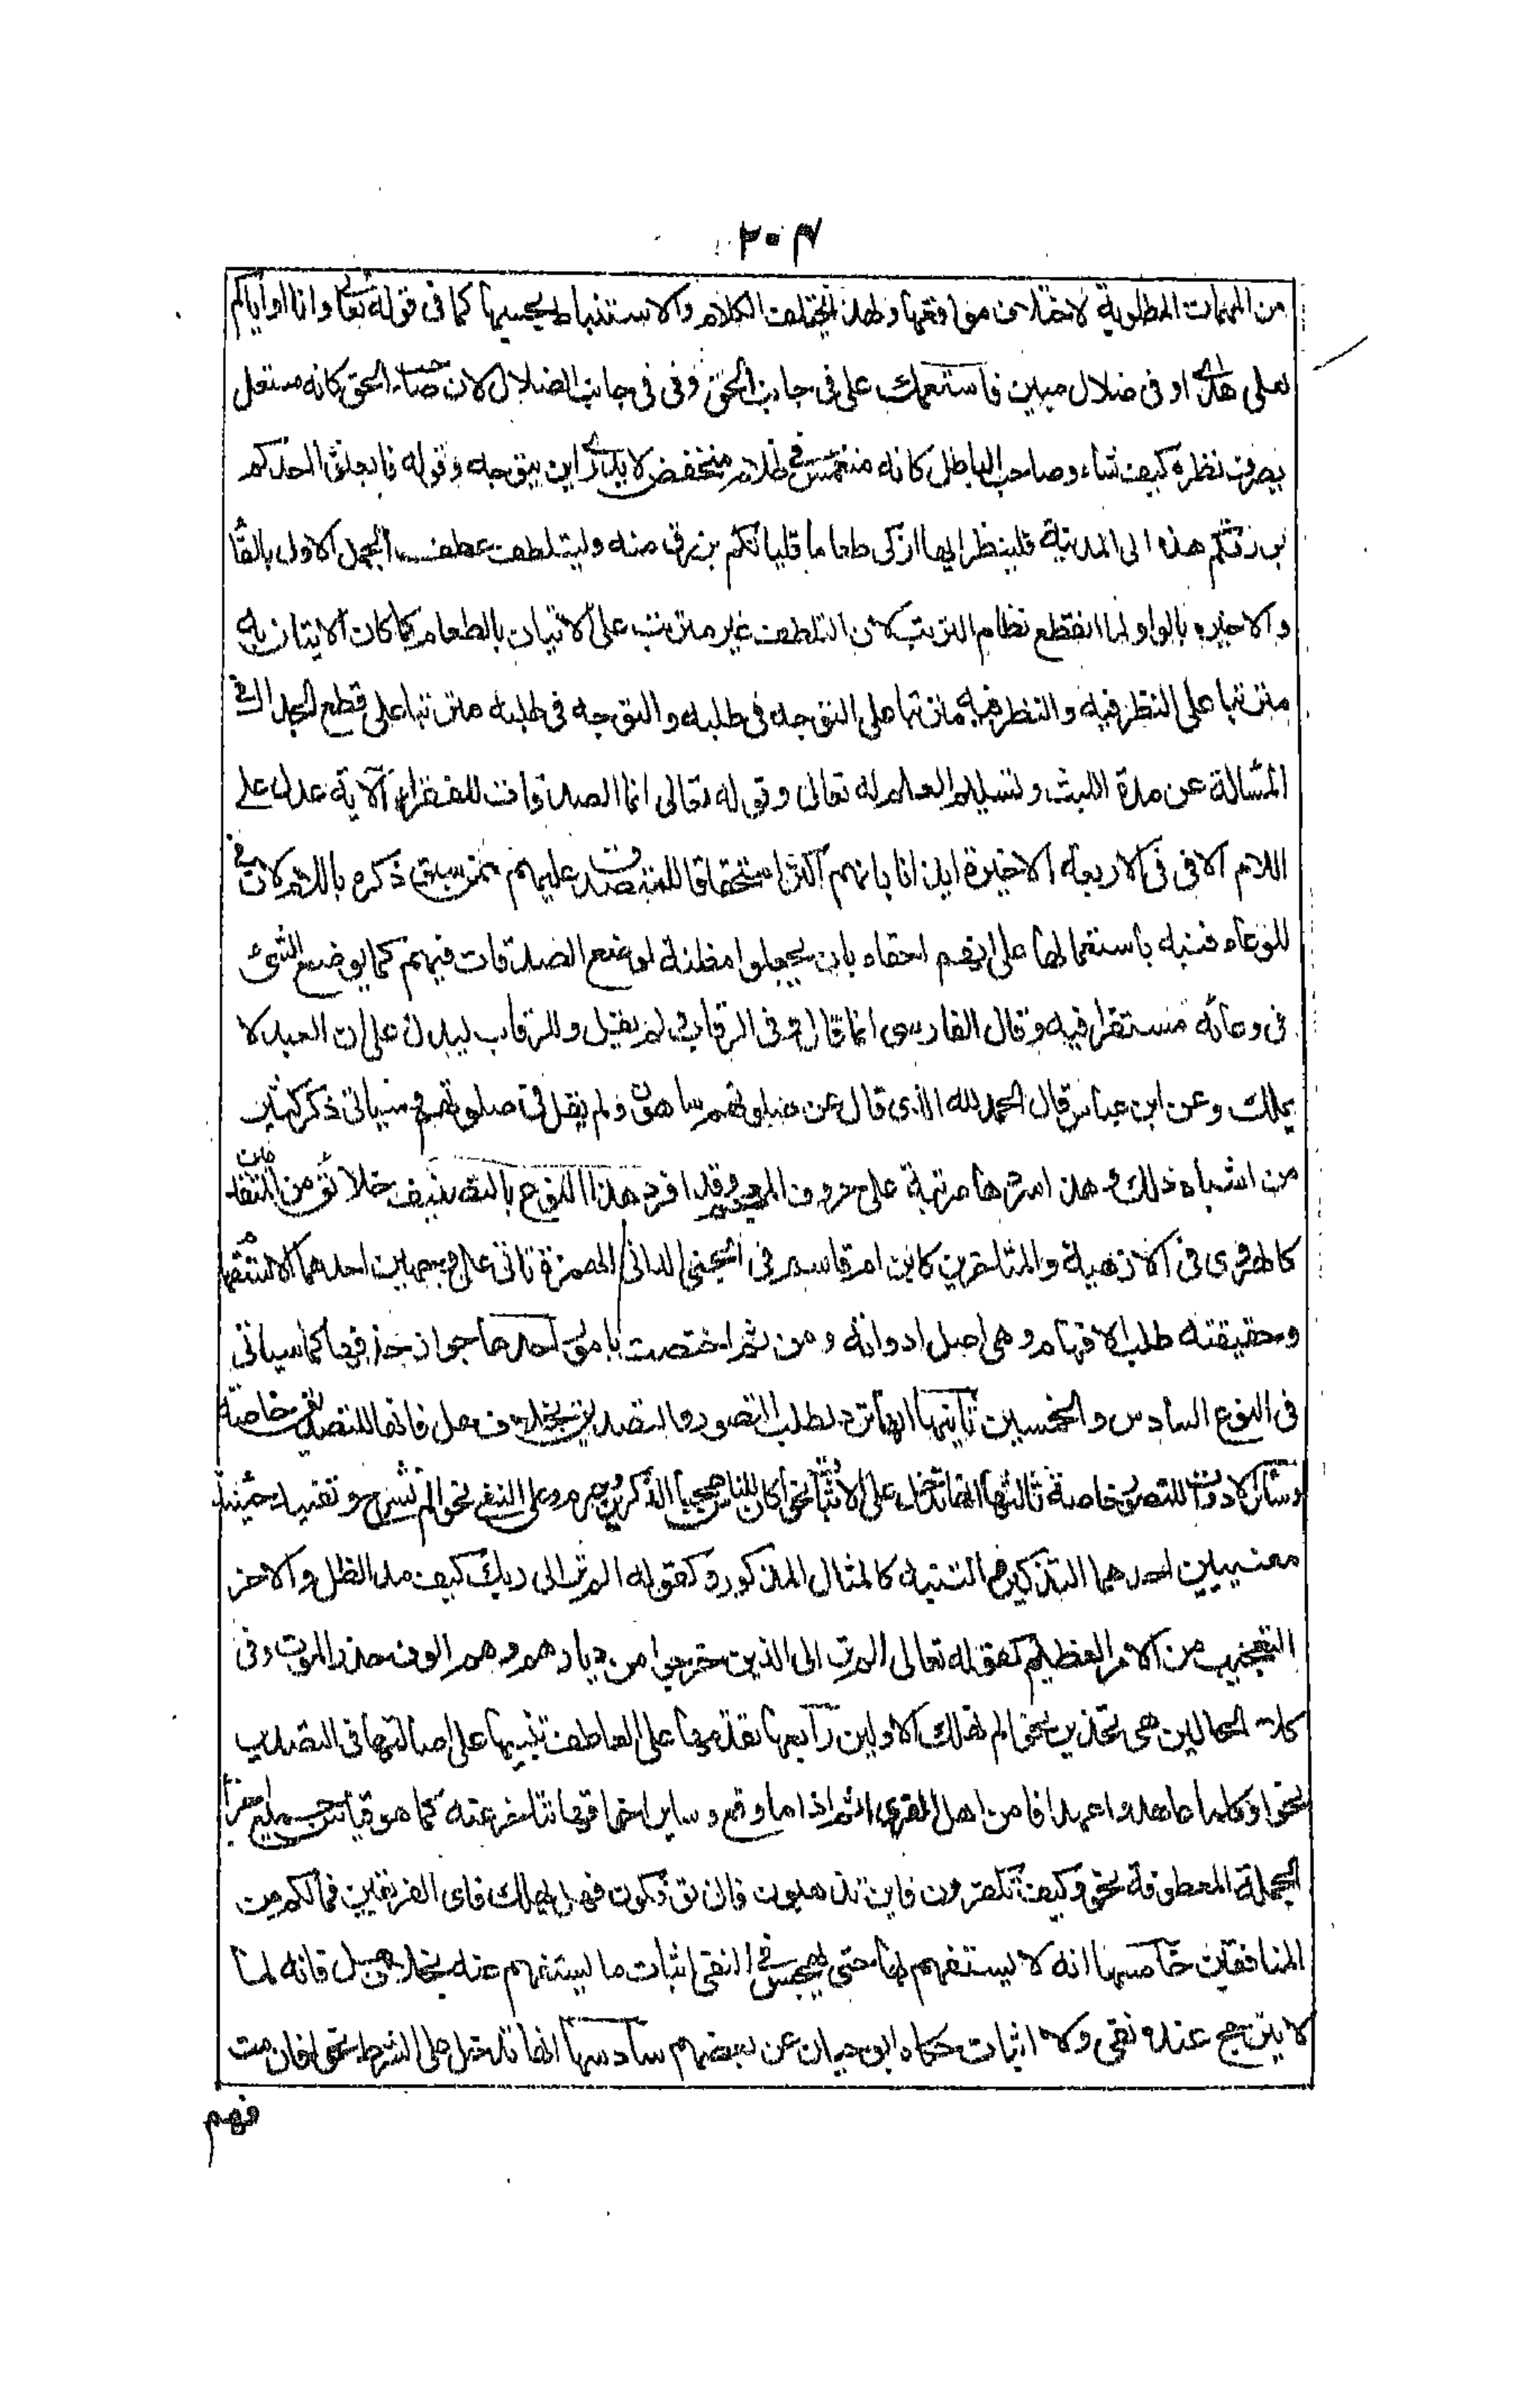 ٢٠٣
من المهمات المطلوبة لاختلاف مواقعها ولهذا يختلف الكلام والاستنباط بحسبها كما فى قوله تعالى وانا او اياكم
لعلى هدى او فى ضلال مبين فاستعملت على فى جانب الحق وفى فى جانب الضلال لان صاحب الحق كانه مستعل
يصرف نظره كيف شاء وصاحب الباطل كانه منغمس فى ظلام منخفض لا يدرى اين يتوجه وقوله فابعثوا احدكم
بورقكم هذه الى المدينة فلينظر ايها ازكى طعاما فلياتكم برزق منه وليتلطف عطف الجمل الاول بالفاء
والاخيرة بالواو لما انقطع نظام الترتب لان التلطف غير مترتب على الاتيان بالطعام كما كان الاتيان به
مترتبا على النظر فيه والنظر فيه مترتبا على التوجه فى طلبه والتوجه فى طلبه مترتبا على قطع الجدال فى
المسألة عن مدة اللبث وتسليم العلم له تعالى وقوله تعالى انما الصدقات للفقراء الآية عدل على
اللام الا فى فى الاربعة الاخيرة ايذانا بانهم اكثر استحقاقا للمتصدق عليهم ممن سبق ذكره باللام لان فى
للوعاء فنبه باستعمالها على انهم احقاء بان يجعلوا مظنة لوضع الصدقات فيهم كما يوضع الشئ
فى وعائه مستقرا فيه وقال الفارسى انما قال وفى الرقاب ولم يقل وللرقاب ليدل على ان العبد لا
يملك وعن ابن عباس قال الحمد لله الذى قال عن صلوتهم ساهون ولم يقل فى صلوتهم وسياتى ذكر كثير
من اشباه ذلك وهذا سردها مرتبة على حروف المعجم وقد افرد هذا النوع بالتصنيف خلائق من المتقدمين
كالهروى فى الازهية والمتاخرين كابن ام قاسم فى الجنى الدانى الهمزة تاتى على وجهين احدهما الاستفهام
وحقيقته طلب الافهام وهى اصل ادواته ومن ثم اختصت بامور احدها جواز حذفها كما سياتى
فى النوع السادس والخمسين ثانيها انها ترد لطلب التصور والتصديق بخلاف هل فانها للتصديق خاصة
وسائر الادوات للتصور خاصة ثالثها انها تدخل على الاثبات نحو اكان للناس عجبا آلذكرين حرم وعلى النفى نحو الم نشرح وتفيد حينئذ
معنيين احدهما التذكير والتنبيه كالمثال المذكور وكقوله الم تر الى ربك كيف مد الظل والاخر
التعجيب من الامر العظيم كقوله تعالى الم تر الى الذين خرجوا من ديارهم وهم الوف حذر الموت وفى
كلا الحالين هى تحذير نحو الم نهلك الاولين رابعها تقدمها على العاطف تنبيها على اصالتها فى التصدير
نحو اوكلما عاهدوا عهدا افامن اهل القرى اثم اذا ما وقع وساير اخواتها تتاخر عنه كما هو قياس جميع اجزاء
الجملة المعطوفة نحو وكيف تكفرون فاين تذهبون فانى تؤفكون فهل يهلك فاى الفريقين فما لكم من
المنافقين خامسها انه لا يستفهم بها حتى يهجس فى النفس اثبات ما يستفهم عنه بخلاف هل فانه لما
لا يترجح عنده نفى ولا اثبات حكاه ابو حيان عن بعضهم سادسها انها تدخل على الشرط نحو افان مت
فهم